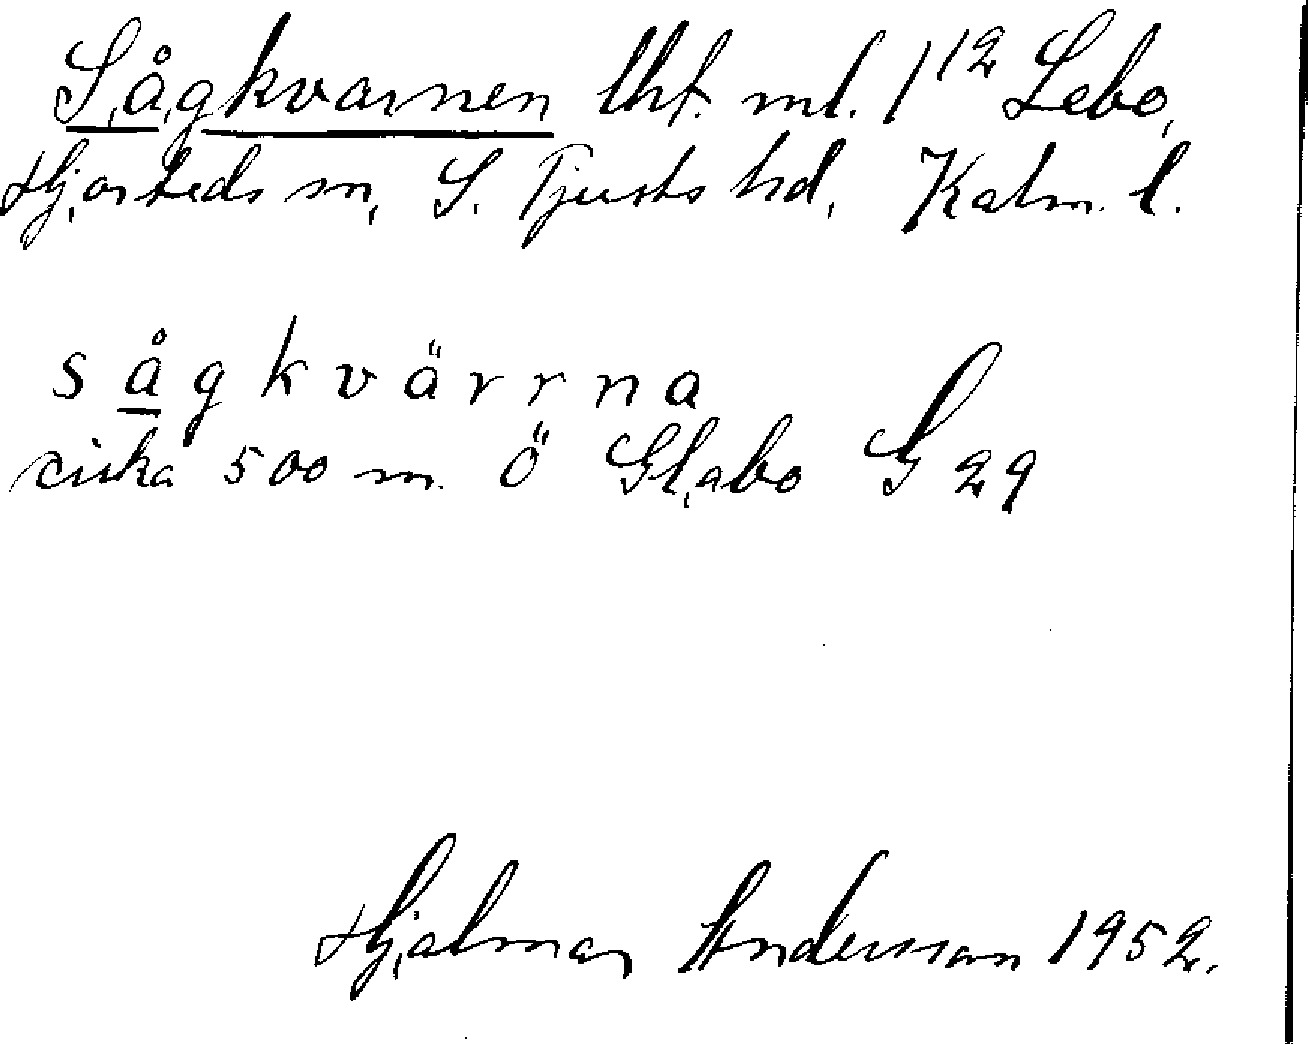 Sågkvarnen lht. ml. 1¹² Lebo,
Hjorteds sn, S. Tjusts hd, Kalm. l.
sågkvärrna
cirka 500 m. Ö Glabo G 29
Hjalmar Andersson 1952.